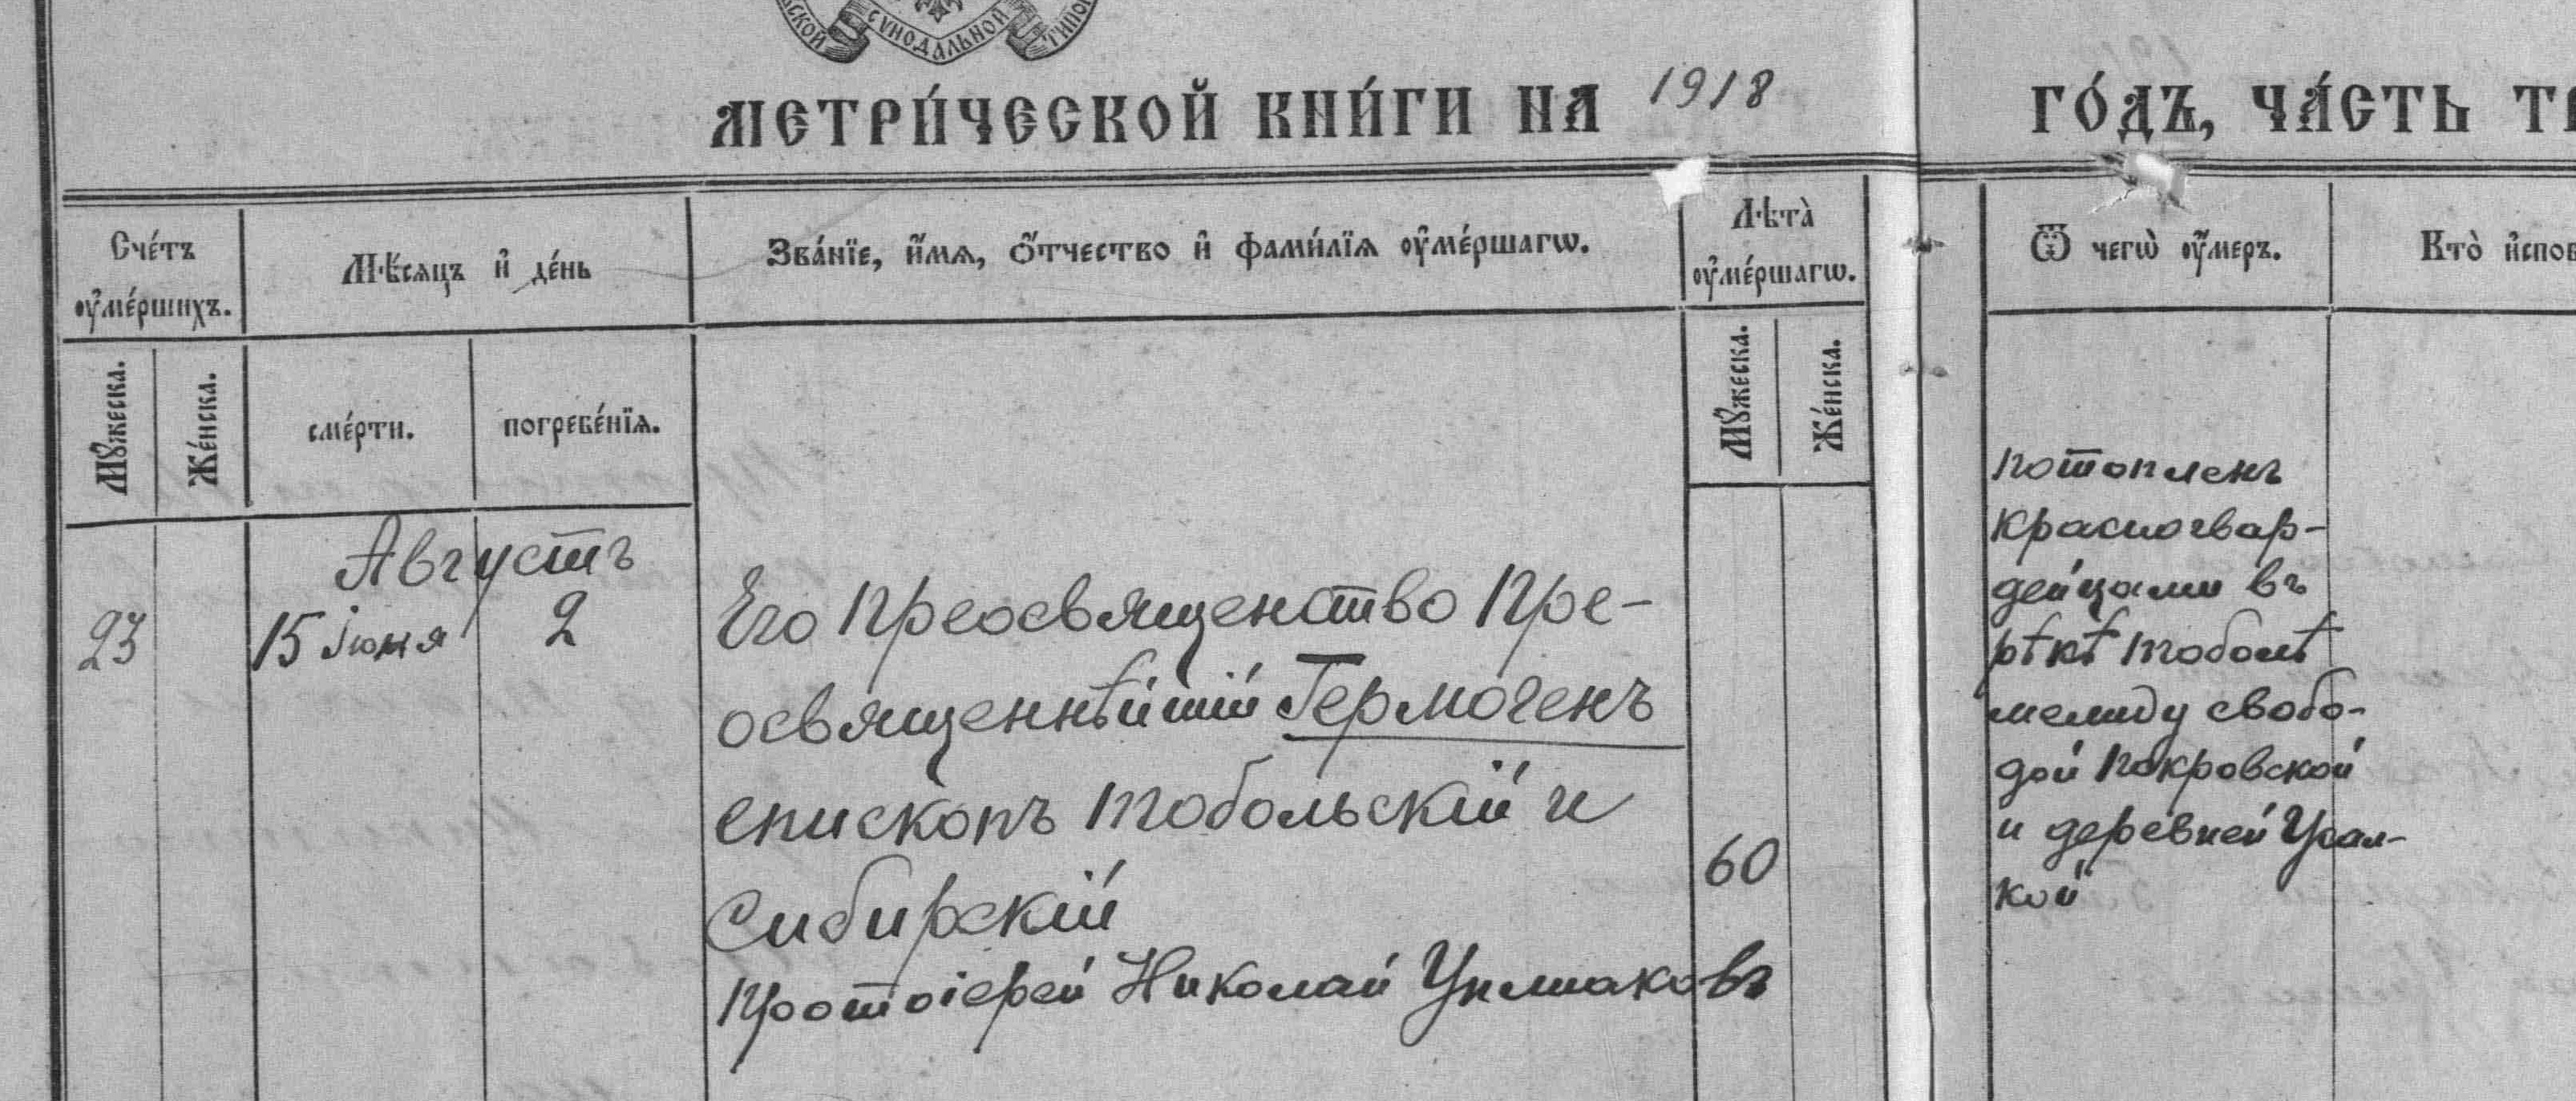 СКОЙ СѴНОДАЛЬНОЙ ТИПО
МЕТРИ́ЧЕСКОЙ КНИ́ГИ НА 1918 ГО́ДЪ, ЧА́СТЬ
Сче́тъ ᲂу҆ме́ршихъ.
Мѣ́сяцъ и҆ де́нь
Зва́нїе, и҆́мѧ, ѻ҆́тчество и҆ фами́лїѧ ᲂу҆ме́ршагѡ.
Лѣта̀ ᲂу҆ме́ршагѡ.
Ѿ чегѡ̀ ᲂу҆́меръ.
Кто̀ и҆спов
Мꙋ́жеска.
Же́нска.
сме́рти.
погребе́нїѧ.
Мꙋ́жеска.
Же́нска.
Августъ
23 15 іюня 2
Его Преосвященство Пре-
освященнѣйшій Гермогенъ
епископъ Тобольскій и
Сибирскій
60
протоіерей Николай
потопленъ
красногвар-
дейцами въ
рѣкѣ Тоболѣ
между свобо-
дой Покровской
и деревней
кой